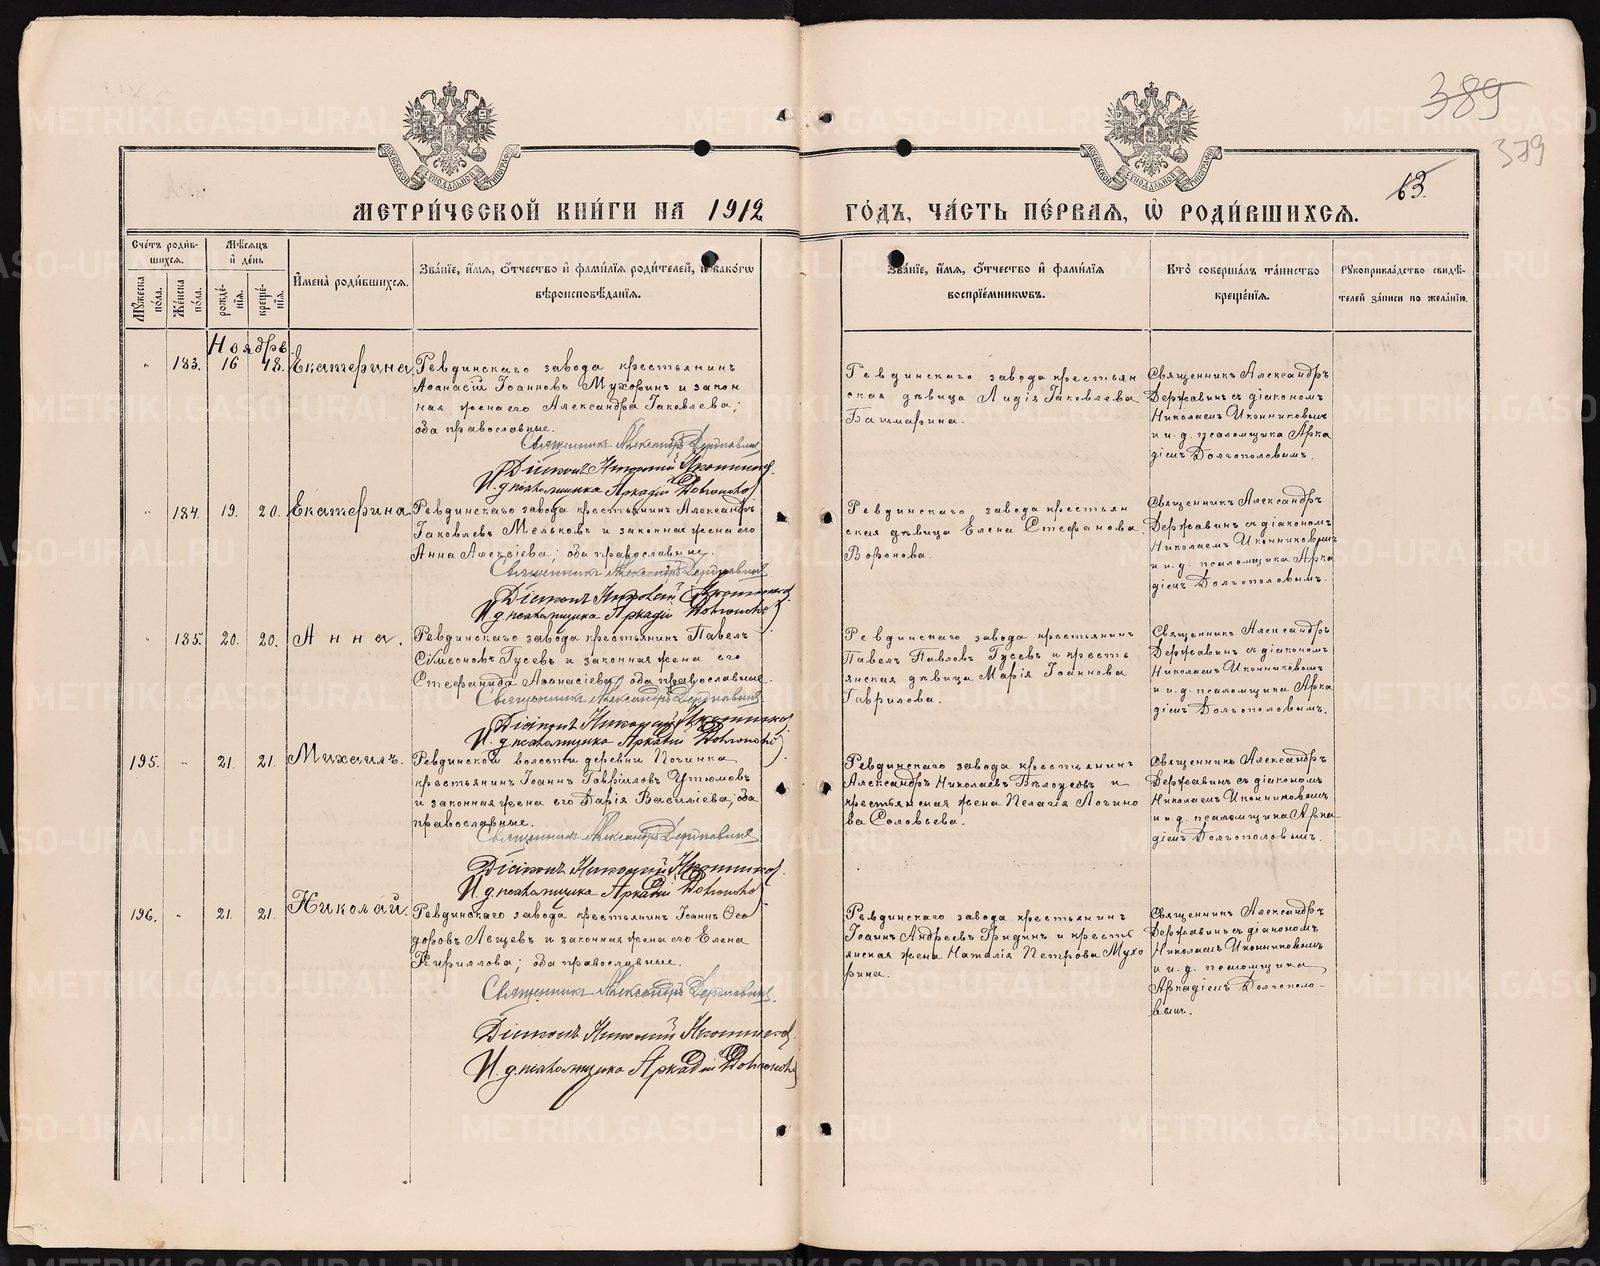 389
379
63.
МЕТРИ́ЧЕСКОЙ КНИ́ГИ НА 1912
ГО́ДЪ, ЧА́СТЬ ПЕ́РВАЯ, Ѿ РОДИ́ВШИХСЯ.
Сче́тъ роди́в-
шихся.
Мѣ́сяцъ
и҆ де́нь
Мꙋ́жеска
пола.
Же́нска
по́ла.
рожде́-
нїя.
креще́-
нїя.
И҆мена̀ роди́вшихся.
Зва́нїе, и҆́мя, ѻ҆́тчество и҆ фами́лїя роди́телей, и҆ како́гѡ
вѣроисповѣ́данїя.
Зва́нїе, и҆́мя, ѻ҆́тчество и҆ фами́лїя
воспрїе́мникѡвъ.
Кто̀ соверша́лъ та́инство
креще́нїя.
Рꙋкоприкла́дство свидѣ́-
телей за́писи по жела́нїю.
Ноябрь.
183. 16 18. Екатерина
Ревдинскаго завода крестьянинъ
Аѳанасій Іоанновъ Мухоринъ и закон
ная жена его Александра Іаковлева;
оба православные.
Священникъ Александръ Державинъ
Діаконъ Николай Иконниковъ
И. д. псаломщика Аркадій
Ревдинскаго завода крестьян
ская дѣвица Лидія Іаковлева
Батмарина.
Священникъ Александръ
Державинъ съ діакономъ
Николаемъ Иконниковымъ
и и. д. псаломщика Арка
діемъ Долгополовымъ.
184. 19. 20. Екатерина
Ревдинскаго завода крестьянинъ Александръ
Іаковлевъ Мельковъ и законная жена его
Анна Алексіева; оба православные.
Священникъ Александръ Державинъ
Діаконъ Николай Иконниковъ
И. д. псаломщика Аркадій
Ревдинскаго завода крестьян
ская дѣвица Елена Стефанова
Воронова.
Священникъ Александръ
Державинъ съ діакономъ
Николаемъ Иконниковымъ
и и. д. псаломщика Арка
діемъ Долгополовымъ.
185. 20. 20. Анна.
Ревдинскаго завода крестьянинъ Павелъ
Сімеоновъ Гусевъ и законная жена его
Стефанида Аѳанасіева; оба православные.
Священникъ Александръ Державинъ
Діаконъ Николай Иконниковъ
И. д. псаломщика Аркадій
Ревдинскаго завода крестьянинъ
Павелъ Павловъ Гусевъ и кресть
янская дѣвица Марія Іоаннова
Гаврилова.
Священникъ Александръ
Державинъ съ діакономъ
Николаемъ Иконниковымъ
и и. д. псаломщика Арка
діемъ Долгополовымъ.
195. 21. 21. Михаилъ.
Ревдинской волости деревни Починка
крестьянинъ Іоаннъ Гавріиловъ Утюмовъ
и законная жена его Дарія Василіева; оба
православные.
Священникъ Александръ Державинъ
Діаконъ Николай Иконниковъ
И. д. псаломщика Аркадій
Ревдинскаго завода крестьянинъ
Александръ Николаевъ Бѣлоусовъ и
крестьянская жена Пелагія Логино
ва Соловьева.
Священникъ Александръ
Державинъ съ діакономъ
Николаемъ Иконниковымъ
и и. д. псаломщика Арка
діемъ Долгополовымъ.
196. 21. 21. Николай.
Ревдинскаго завода крестьянинъ Іоаннъ Ѳео
доровъ Лещевъ и законная жена его Елена
Кириллова; оба православные.
Священникъ Александръ Державинъ.
Діаконъ Николай Иконниковъ.
И. д. псаломщика Аркадій
Ревдинскаго завода крестьянинъ
Іоаннъ Андреевъ Гридинъ и кресть
янская жена Наталія Петрова Мухо
рина.
Священникъ Александръ
Державинъ съ діакономъ
Николаемъ Иконниковымъ
и и. д. псаломщика
Аркадіемъ Долгополо-
вымъ.
METRIKI.GASO-URAL.RU